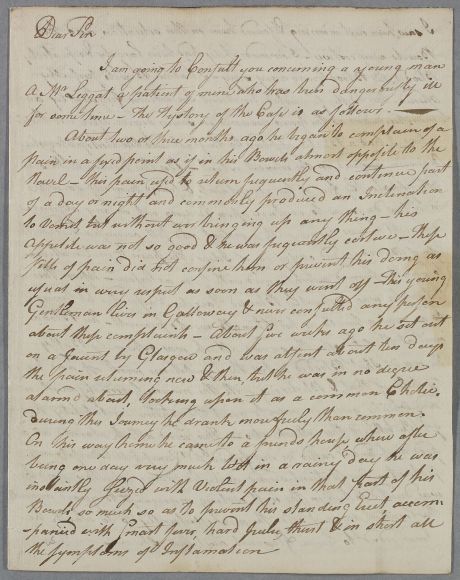 Dear Sir
I am going to Consult you concerning a young man
a Mr Leggat a patient of mine who has been dangerously ill
for some time – The Hystory of the Case is as follows –
About two or three months ago he began to complain of a
pain in a fixed point as if in his Bowels almost opposite to the
Navel – this pain used to return frequently and continue part
of a day or night and commonly produced an Inclination
to Vomit but without ever bringing up any thing – his
Appetite was not so good & he was frequently costive – these
fitts of pain did not confine him or prevent his doing as
usual in every respect as soon as they went off – this young
Gentleman lives in Galloway & never consulted any person
about these complaints – About five weeks ago he set out
on a Journey by Glasgow and was absent about ten days
the pain returning now & then, but he was in no degree
alarm'd about, looking upon it as a common Cholic.
during this Journey he drank more freely than common.
On this way home he came to a friends house where after
being one day very much Wet in a rainy day he was
instantly Seized with Violent pain in that part of his
Bowels so much so as to prevent his standing Erect, accom-
-panied with Smart fever, hard pulse, thirst & in short all
the Symptoms of Inflamation